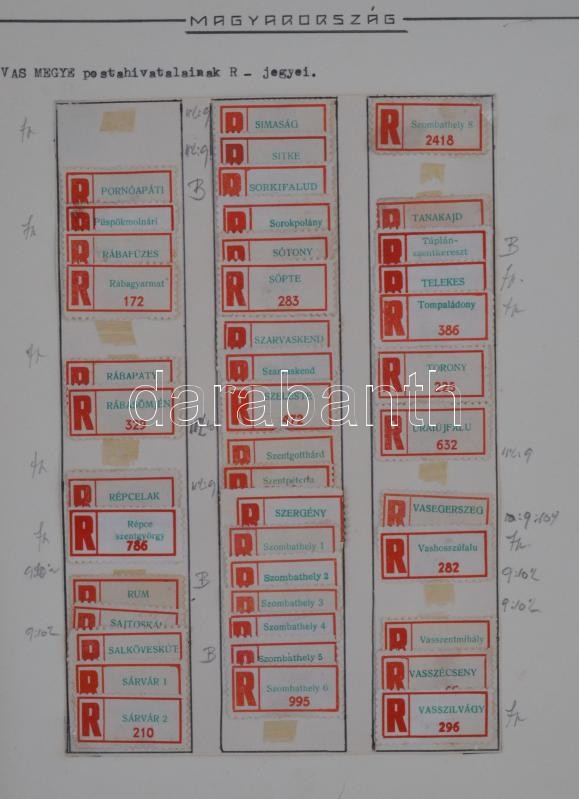 MAGYARORSZÁG
VAS MEGYE postahivatalainak R - jegyei.
R PORNÓAPÁTI
R Püspökmolnári
R RÁBAFÜZES
R Rábagyarmat
172
R RÁBAPATY
R RÁBASÖMJÉN
R RÉPCELAK
R Répce
szentgyörgy
786
R RUM
R SALKÖVESKÚT
R SÁRVÁR 1
R SÁRVÁR 2
210
R SIMASÁG
R SITKE
R SORKIFALUD
R Sorokpolány
R SÓTONY
R SÖPTE
283
R SZARVASKEND
R Szarvaskend
R SZELESTE
R Szentgotthárd
R Szentpéterfa
R SZERGÉNY
R Szombathely 1
R Szombathely 2
R Szombathely 3
R Szombathely 4
R Szombathely 5
R Szombathely 6
995
R Szombathely 8
2418
R TANAKAJD
R Táplán-
szentkereszt
R TELEKES
R Tompaládony
386
R TORONY
R URAIÚJFALU
632
R VASEGERSZEG
R Vashosszúfalu
282
R Vasszentmihály
R VASSZÉCSENY
R VASSZILVÁGY
296
B
B
B
B
darabanth